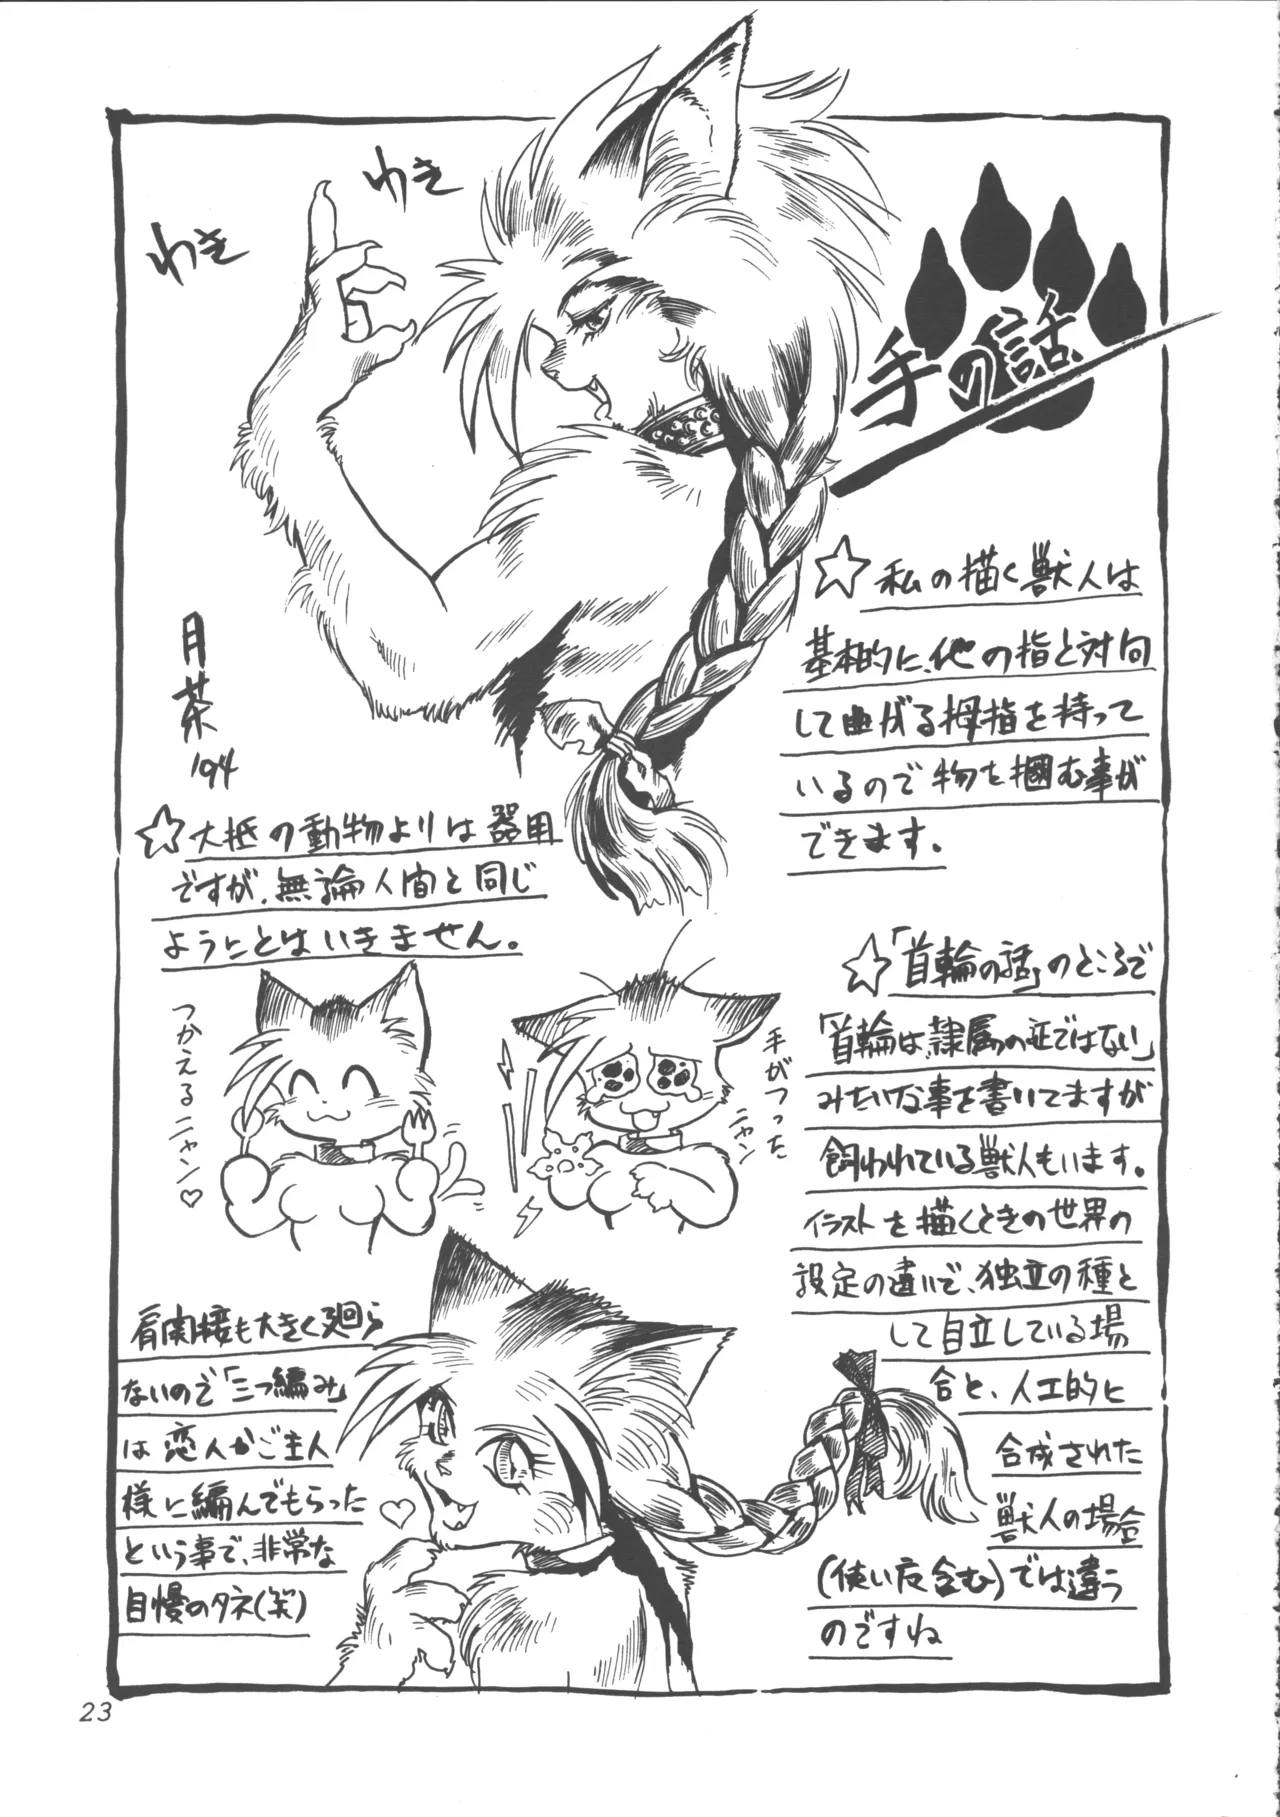 手の話
わき
わき
☆私の描く獣人は
基本的に、他の指と対向
して曲がる拇指を持って
いるので物を掴む事が
できます。
月茶
'94
☆大抵の動物よりは器用
ですが、無論人間と同じ
ようにとはいきません。
つかえるニャン♡
手がつった
ニャン
☆「首輪の話」のところで
「首輪は、隷属の証ではない」
みたいな事を書いてますが
飼われている獣人もいます。
イラストを描くときの世界の
設定の違いで、独立の種と
して自立している場
合と、人工的に
合成された
獣人の場合
(使い魔含む)では違う
のですね
肩関接も大きく廻ら
ないので「三つ編み」
は恋人かご主人
様に編んでもらった
という事で、非常な
自慢のタネ(笑)
23